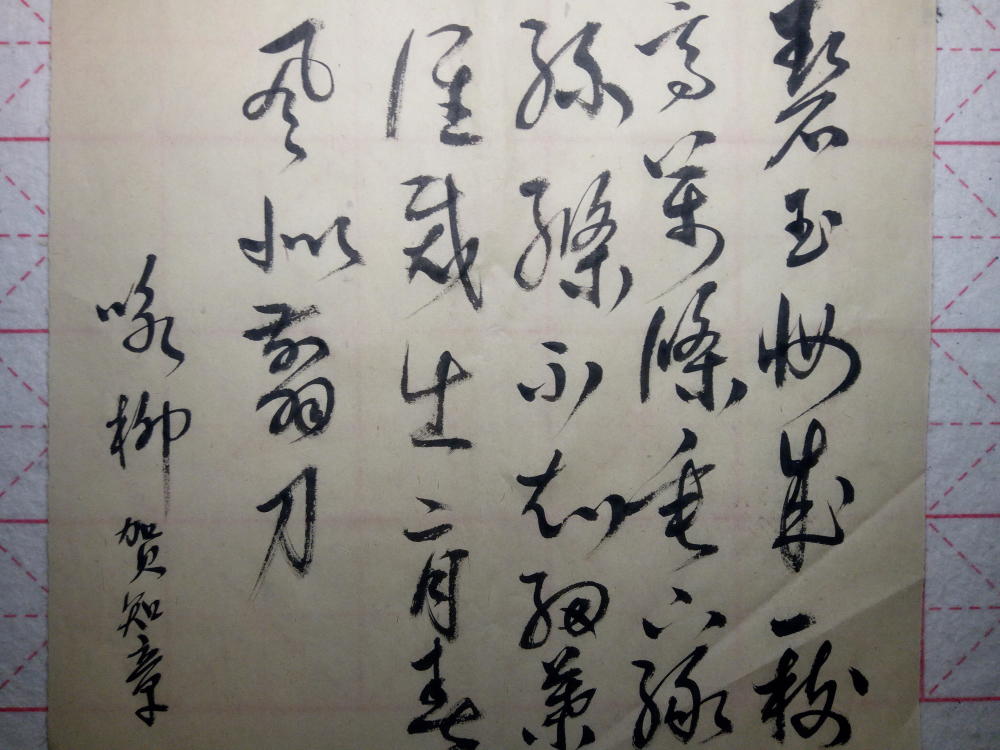 碧玉妝成一樹
高萬條垂下綠
絲縧不知細葉
誰裁出二月春
風似翦刀
咏柳 賀知章